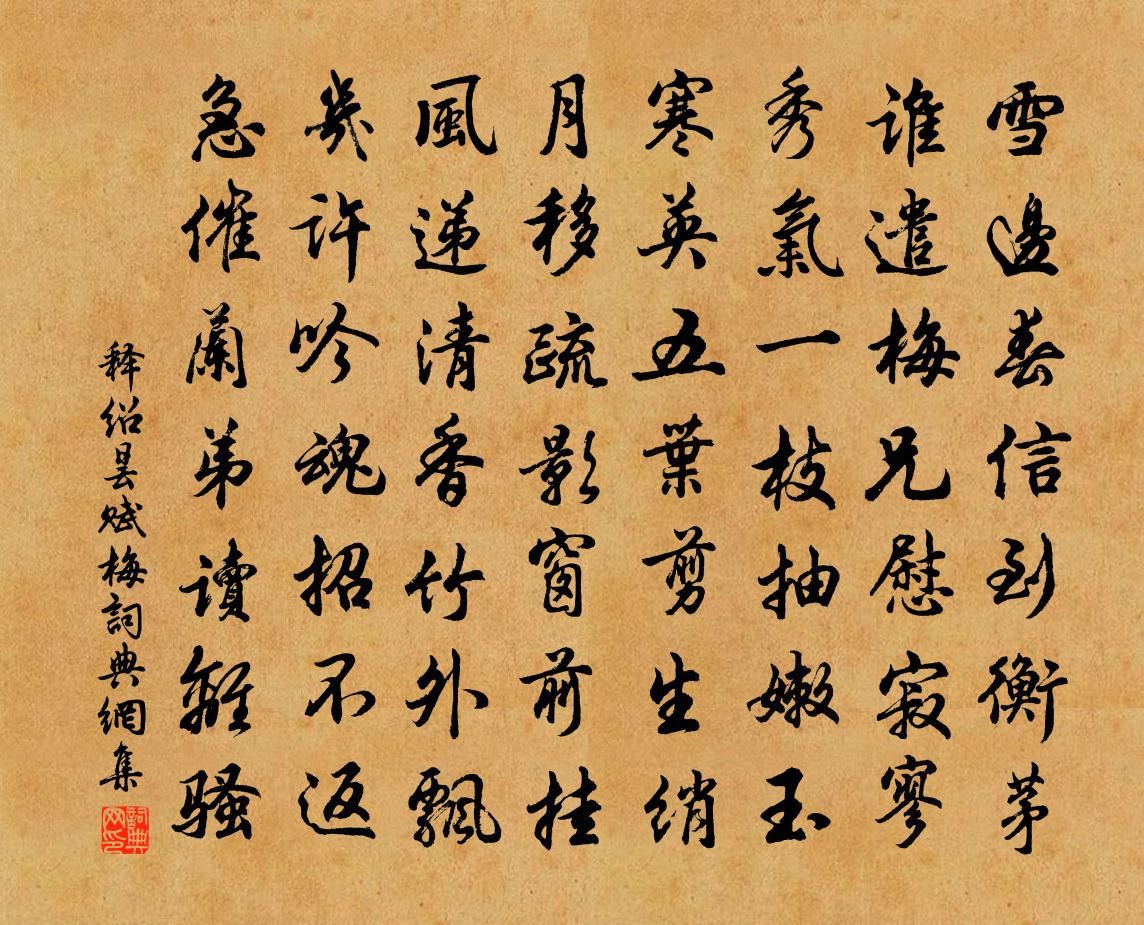 雪邊春信到衡茅
誰遣梅兄慰寂寥
秀氣一枝抽嫩玉
寒英五葉剪生綃
月移疏影窗前挂
風递清香竹外飄
幾許吟魂招不返
急催蘭弟讀離騷
释绍昙赋梅詞典網集
詞典网印